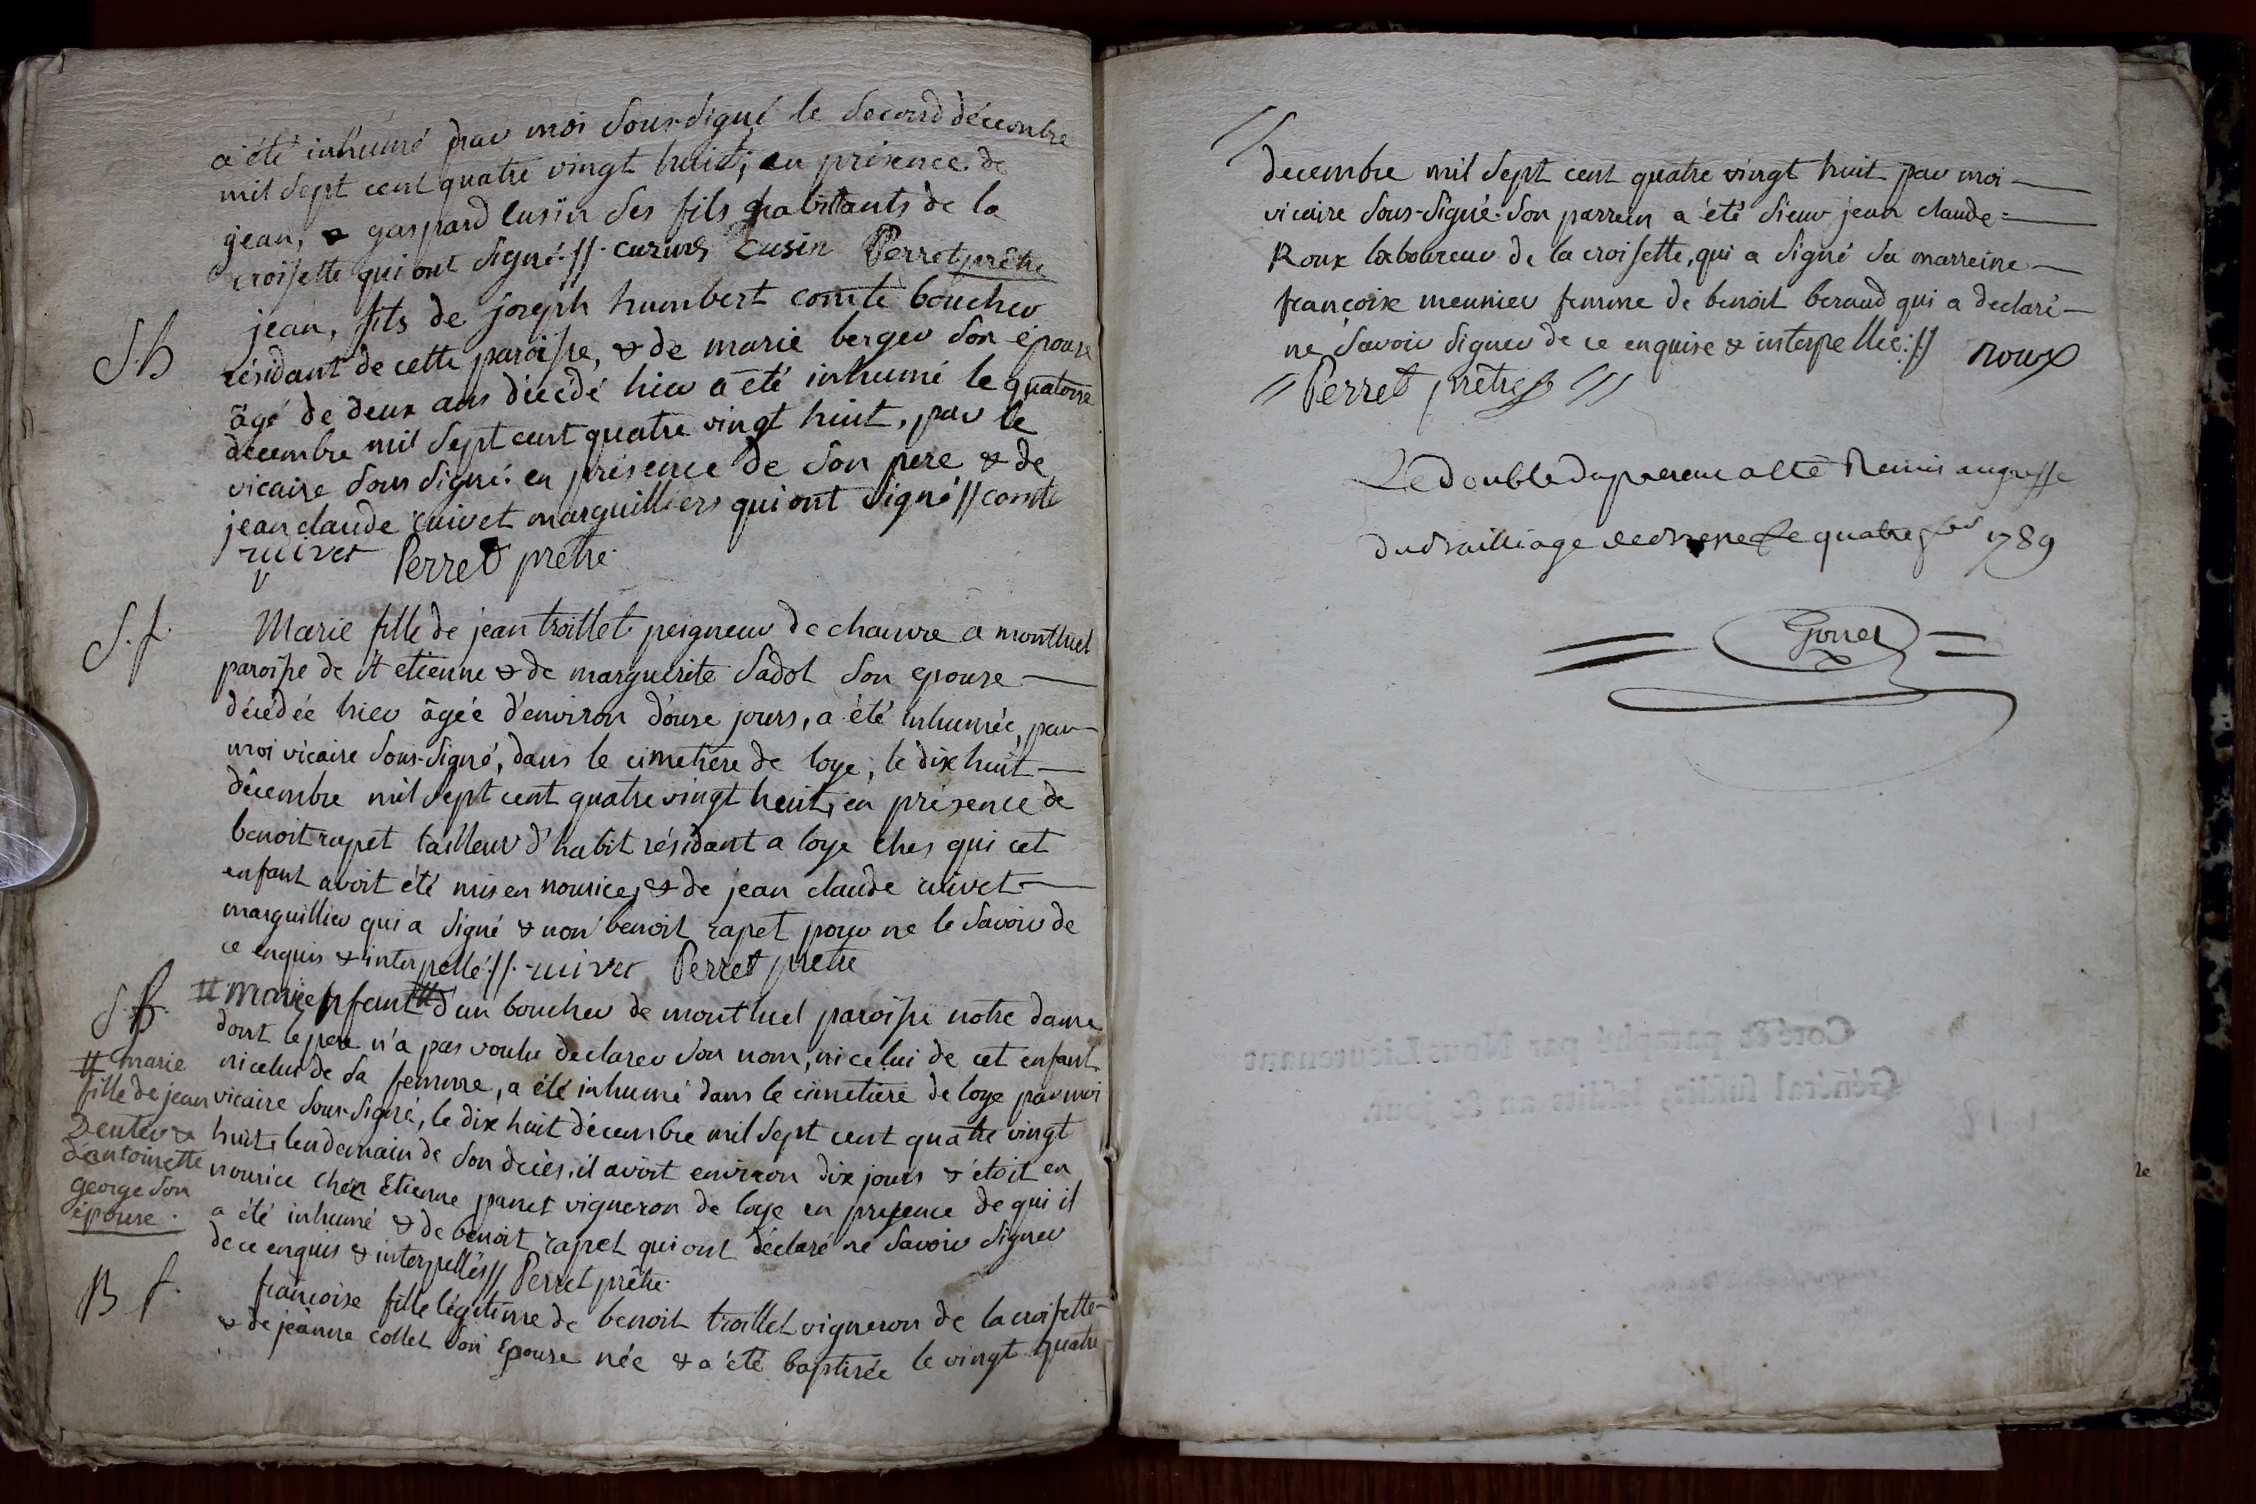 a été inhumé par moi Sous-Signé le Second décembre
mil Sept cent quatre vingt huit, en présence de
jean, & gaspard cusin Ses fils habittants de la
croisette qui ont Signé.//. cusin Cusin Perret prêtre
S.h
jean, fils de joseph humbert comte boucher
résidant de cette paroisse, & de marie berger Son épouse
âgé de deux ans décédé hier a été inhumé le quatorse
décembre mil Sept cent quatre vingt huit, par le
vicaire Sous Signé: en présence de Son pere & de
jean claude cuivet marguilliers qui ont Signé // comte
cuivet Perret prêtre
S.f.
Marie fille de jean troillet peigneur de chanvre a montluel
paroisse de st etienne & de marguerite Sadot Son epouse
décédée hier âgée d'environ douse jours, a été inhumée, par
moi vicaire Sous-Signé, dans le cimetiere de loye, le dix huit
décembre mil Sept cent quatre vingt huit, en présence de
benoit rapet tailleur d'habit résidant a loye ches qui cet
enfant avoit été mis en nourice, & de jean claude cuivet
marguillier qui a Signé & non benoit rapet pour ne le Savoir de
ce enquis & interpellé.//. cuivet Perret prêtre
S.f.
# Marie enfant # d'un boucher de montluel paroisse notre dame
dont le pere n'a pas voulu declarer Son nom, ni celui de cet enfant
ni celui de Sa femme, a été inhumé dans le cimetiere de loye par moi
vicaire Sous-Signé, le dix huit décembre mil Sept cent quatre vingt
huit, lendemain de Son decès, il avoit environ dix jours & étoit en
nourice chez Etienne panet vigneron de loye en presence de qui il
a été inhumé & de benoit rapet qui ont déclaré ne Savoir Signer
de ce enquis & interpellés // Perret prêtre.
# marie
fille de jean
&
d'antoinette
george Son
épouse.
B f.
françoise fille légitime de benoit troillet vigneron de la croisette
& de jeanne collet Son Epouse née & a été baptisée le vingt quatre
//
decembre mil Sept cent quatre vingt huit par moi
vicaire Sous-Signé. Son parrein a été Sieur jean claude
Roux laboureur de la croisette, qui a Signé Sa marreine
françoise meunier femme de benoit beraud qui a declaré
ne Savoir Signer de ce enquise & interpellée.// roux
// Perret prêtre ///
Le double du present a été Remis au greffe
du Bailliage de Bresse le quatre 1789
Coté & paraphé par Nous Lieutenant
Général susdit, lesdits an & jour.